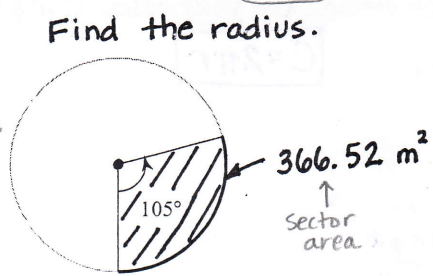 Find the radius.
366.52 m²
105°
sector
area